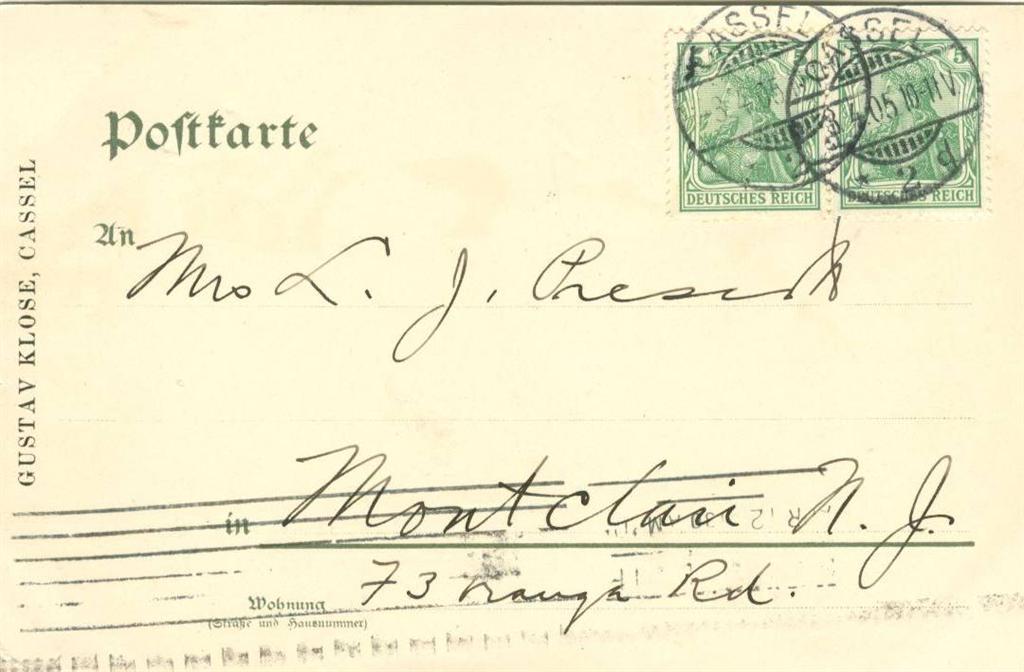 CASSEL
CASSEL
3.4.05 10-11V
* 2 d
5
5
DEUTSCHES REICH
DEUTSCHES REICH
Poſtkarte
GUSTAV KLOSE, CASSEL
An
Mrs L. J.
in
Montclair N. J.
73 Rd.
Wohnung
(Straße und Hausnummer)